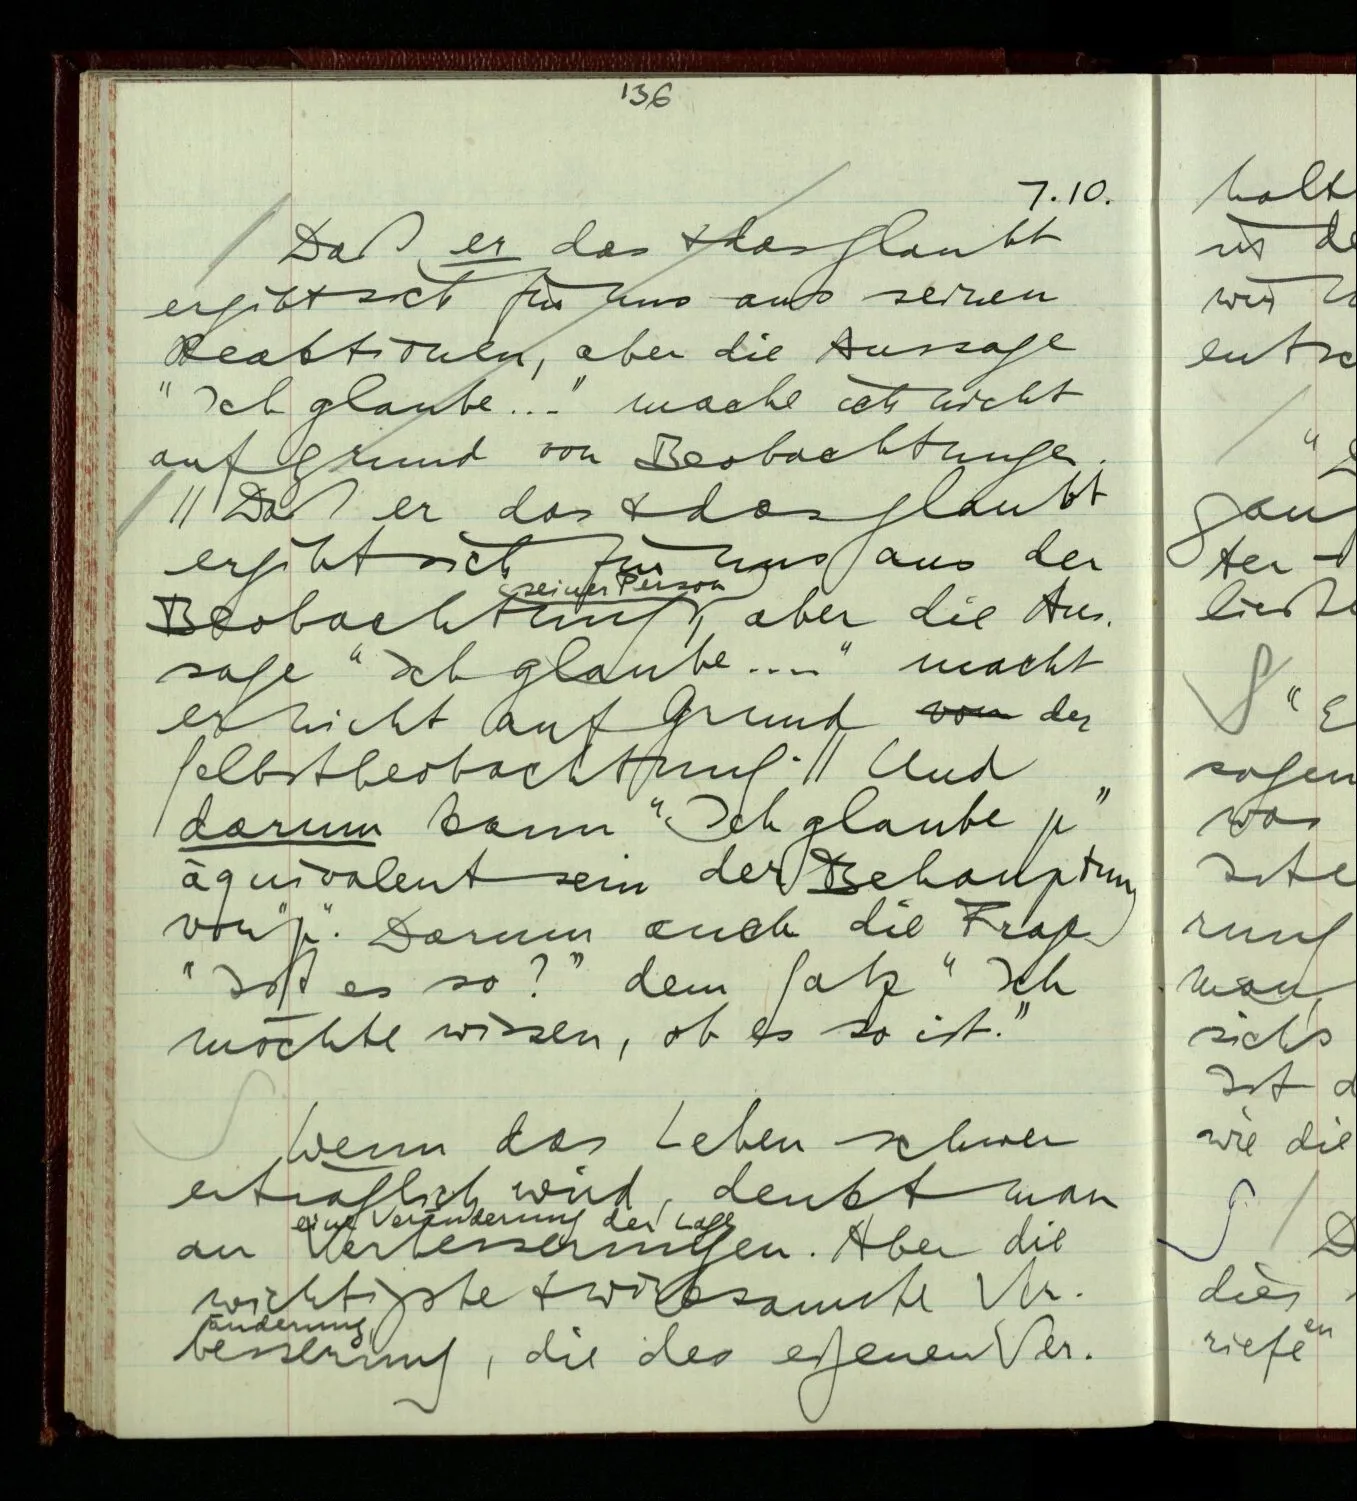 136
7.10.
Daß er das & das glaubt
ergibt sich für uns aus seinen
Reaktionen, aber die Aussage
"Ich glaube..." mache ich nicht
auf Grund von Beobachtungen.
|| Daß er das & das glaubt
ergibt sich für uns aus der
seiner Person
Beobachtung, aber die Aus-
sage "Ich glaube...." macht
er nicht auf Grund von der
Selbstbeobachtung. || Und
darum kann "Ich glaube p"
äquivalent sein der Behauptung
von "p". Darum auch die Frage
"Ist es so?" dem Satz "Ich
möchte wissen, ob es so ist."
Wenn das Leben schwer
erträglich wird, denkt man
eine Veränderung der Lage
an Verbesserungen. Aber die
wichtigste & wirksamste Ver-
änderung
besserung, die des eigenen Ver-
halt
"
gan
ter
S "E
sagen
was
rung
man
sichs
ist d
wie die
D
dies
en
riefe